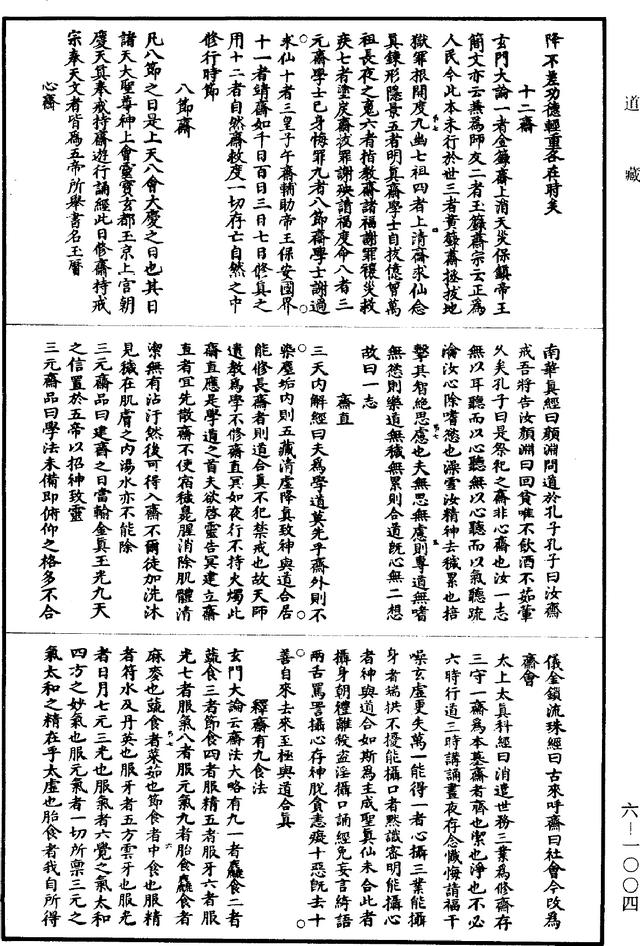 道藏
降不差功德輕重各在時矣
十二齋
玄門大論一者金籙齋上消天災保鎮帝王
簡文亦云兼為師友二者玉籙齋宗云正為
人民今此本未行於世三者黃籙齋拯拔地
獄罪根開度九幽七祖四者上清齋求仙念
真鍊形隱景五者明真齋學士自拔億曾萬
祖長夜之䰟六者指教齋請福謝罪禳災救
疾七者塗炭齋拔罪謝殃請福度命八者三
元齋學士已身悔罪九者八節齋學士謝過
求仙十者三皇子午齋輔助帝王保安國界
十一者靖齋如千日百日三日七日修真之
用十二者自然齋救度一切存亡自然之中
修行時節
八節齋
凡八節之日是上天八會大慶之日也其日
諸天大聖尊神上會靈寶玄都玉京上宮朝
慶天真奉戒持齋遊行誦經此日修齋持戒
宗奉天文者皆為五帝所舉書名玉曆
心齋
南華真經曰顏淵問道於孔子孔子曰汝齋
戒吾將告汝顏淵曰回貧唯不飲酒不茹葷
久矣孔子曰是祭祀之齋非心齋也汝一志
無以耳聽而以心聽無以心聽而以氣聽疏
瀹汝心除嗜慾也澡雪汝精神去穢累也掊
擊其智絕思慮也夫無思無慮則專道無嗜
無慾則樂道無穢無累則合道既心無二想
故曰一志
齋直
三天內解經曰夫為學道莫先乎齋外則不
染塵垢內則五藏清虛降真致神與道合居
能修長齋者則道合真不犯禁戒也故天師
遺教為學不修齋直冥如夜行不持火燭此
齋直應是學道之首夫欲啓靈告冥建立齋
直者宜先散齋不使宿穢臭腥消除肌體清
潔無有沾汙然後可得入齋不爾徒加洗沐
見穢在肌膚之內湯水亦不能除
三元齋品曰建齋之日當輸金真玉光九天
之信置於五帝以招神致靈
三元齋品曰學法未備即俯仰之格多不合
儀金鎖流珠經曰古來呼齋曰社會今改為
齋會
太上太真科經曰消遣世務三業為修齋存
三守一齋為本基齋者齊也潔也淨也不必
六時行道三時講誦晝夜存念懺悔請福干
噪玄虛更失萬一能得一者心攝三業能攝
身者端拱不擾能攝口者默識密明能攝心
者神與道合如斯為主成聖真仙未合此者
攝身朝禮離殺盜淫攝口誦經免妄言綺語
兩舌罵詈攝心存神脫貪恚癡十惡既去十
善自來去來至極與道合真
釋齋有九食法
玄門大論云齋法大略有九一者麤食二者
蔬食三者節食四者服精五者服牙六者服
光七者服氣八者服元氣九者胎食麤食者
麻麥也蔬食者菜茹也節食者中食也服精
者符水及丹英也服牙者五方雲牙也服光
者日月七元三光也服氣者六覺之氣太和
四方之妙氣也服元氣者一切所稟三元之
氣太和之精在乎太虛也胎食者我自所得
六一一〇〇四